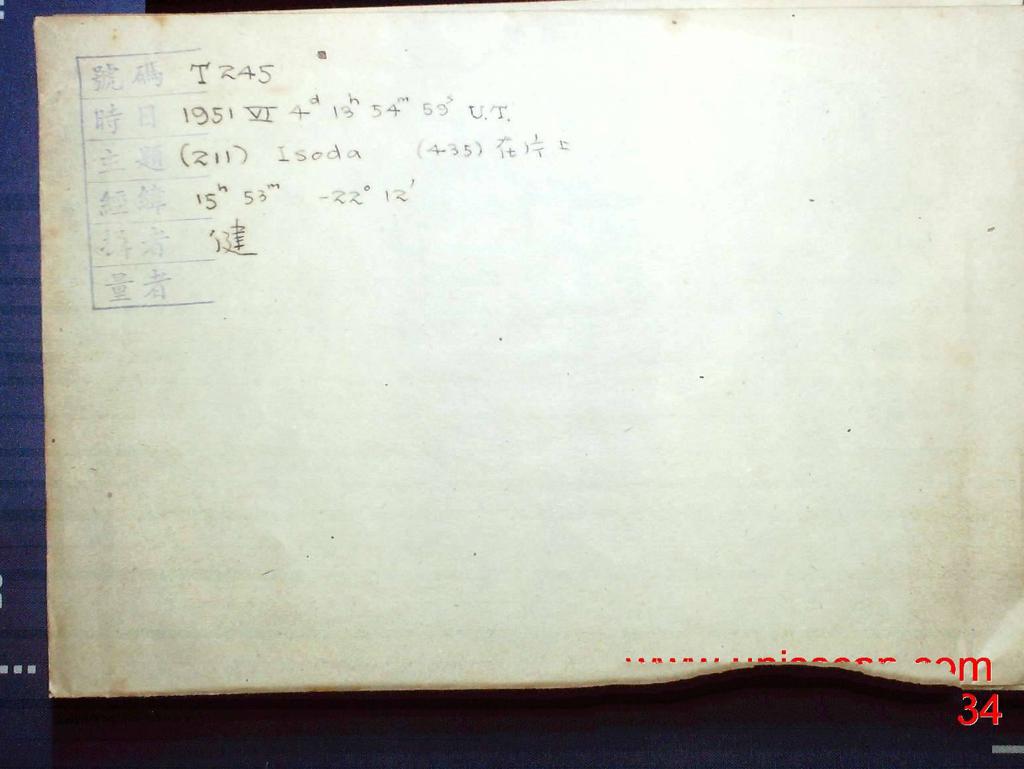 號碼 T 245
時日 1951 VI 4ᵈ 13ʰ 54ᵐ 59ˢ U.T.
主題 (211) Isoda (435) 在片上
經緯 15ʰ 53ᵐ -22° 12'
者 健
量者
34